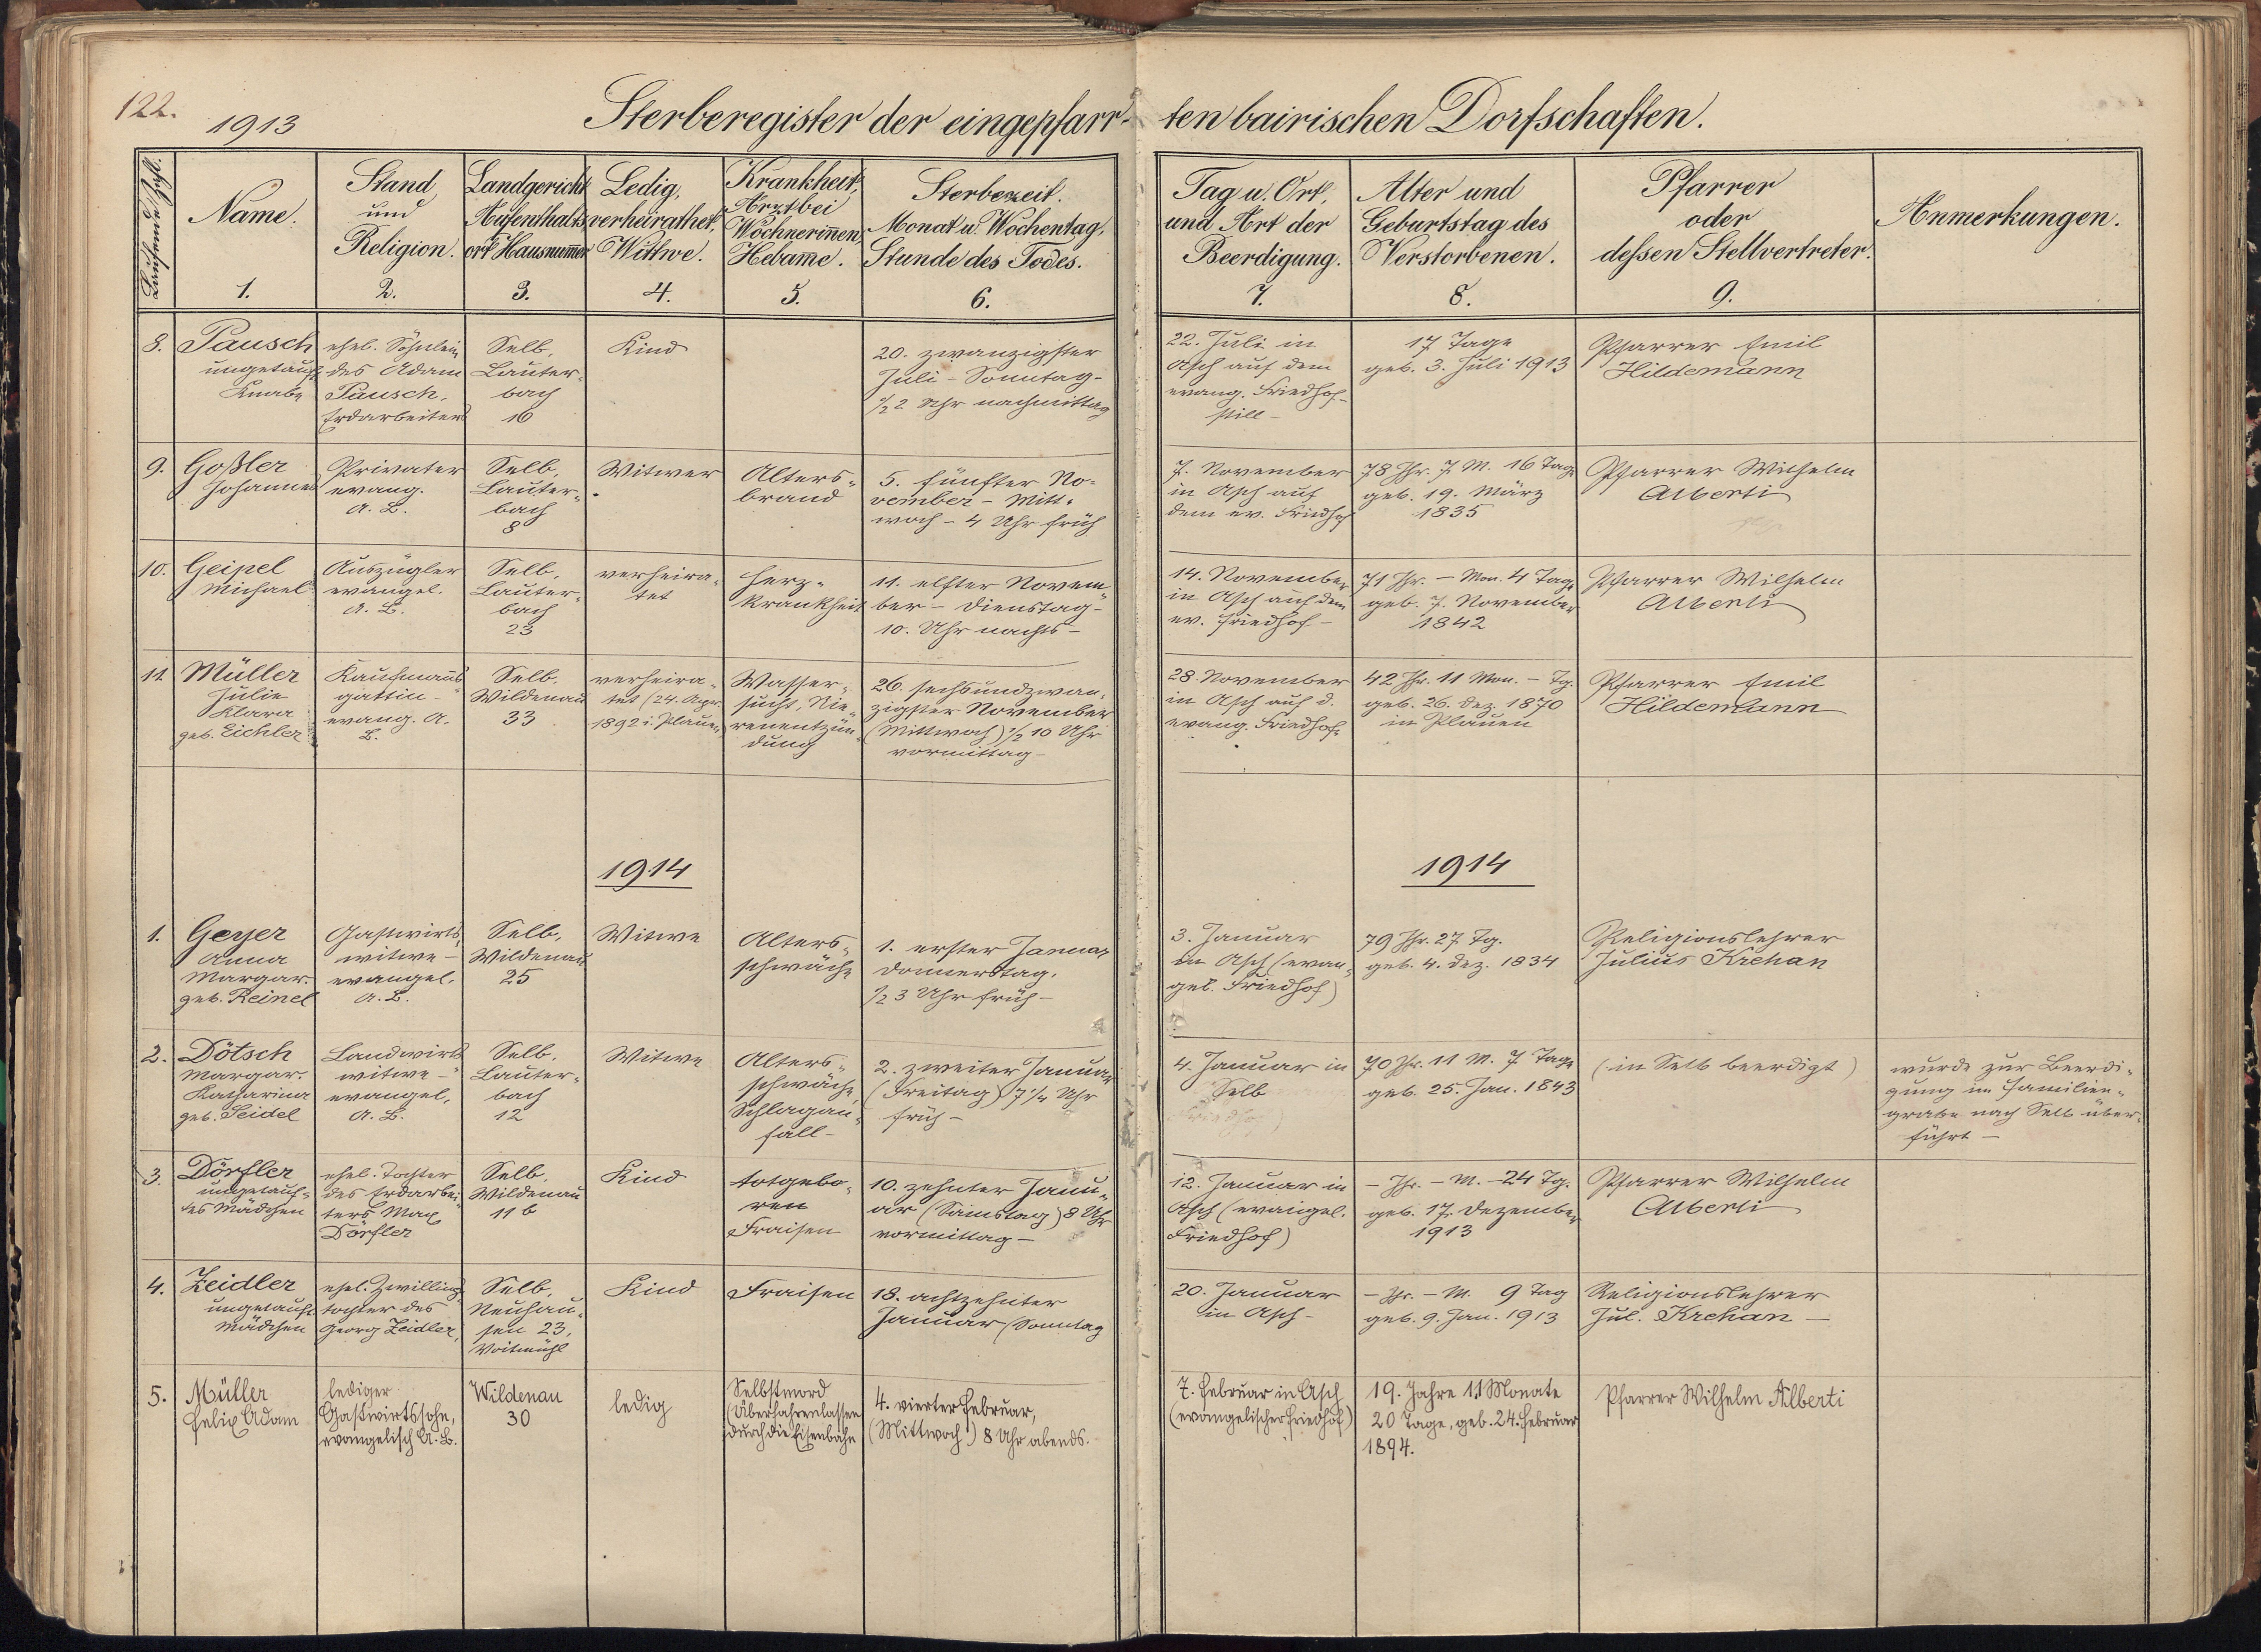 122.
1913
Sterberegister der eingepfarr-
ten bairischen Dorfschaften.
Laufende Zahl.
Name.
1.
Stand
und
Religion.
2.
Landgericht
Aufenthalts-
ort Hausnummer
3.
Ledig,
verheirathet,
Wittwe.
4.
Krankheit,
Arzt bei
Wöchnerinnen,
Hebame.
5.
Sterbezeit.
Monat u. Wochentag,
Stunde des Todes.
6.
Tag u. Ort,
und Art der
Beerdigung.
7.
Alter und
Geburtstag des
Verstorbenen.
8.
Pfarrer
oder
dessen Stellvertreter.
9.
Anmerkungen.
8.
Pausch
ungetauft
Knabe
ehel. Söhnlein
des Adam
Pausch,
Erdarbeiter
Selb,
Lauter-
bach
16
Kind
20. zwanzigster
Juli - Sonntag -
1/2 2 Uhr nachmittag
22. Juli in
Asch auf dem
evang. Friedhof -
still -
17 Tage
geb. 3. Juli 1913
Pfarrer Emil
Hildemann
9.
Goßler
Johannes
Privater
evang.
A. B.
Selb,
Lauter-
bach
8
Witwer
Alters-
brand
5. fünfter No-
vember - Mitt-
woch - 4 Uhr früh
7. November
in Asch auf
dem ev. Friedhof
78 Jhr. 7 M. 16 Tage
geb. 19. März
1835
Pfarrer Wilhelm
Alberti
10.
Geipel
Michael
Auszügler
evangel.
A. B.
Selb,
Lauter-
bach
23
verheira-
tet
Herz-
krankheit
11. elfter Novem-
ber - Dienstag -
10. Uhr nachts -
14. November
in Asch auf dem
ev. Friedhof -
71 Jhr. - Mon. 4 Tage
geb. 7. November
1842
Pfarrer Wilhelm
Alberti
11.
Müller
Julie
Klara
geb. Eichler
Kaufmanns-
gattin -
evang. A.
B.
Selb.
Wildenau
33
verheira-
tet (24. Apr.
1892 i. Plauen
Wasser-
sucht, Nie-
renentzün-
dung
26. sechsundzwan-
zigster November
(Mittwoch) 1/2 10 Uhr
vormittag -
28. November
in Asch auf d.
evang. Friedhof
42 Jhr. 11 Mon. - Tg.
geb. 26. Dez. 1870
in Plauen
Pfarrer Emil
Hildemann
1914
1914
1.
Geyer
Anna
Margar.
geb. Reinel
Gastwirts-
witwe -
evangel.
A. B.
Selb,
Wildenau
25
Witwe
Alters-
schwäche
1. erster Januar
Donnerstag,
1/2 3 Uhr früh -
3. Januar
in Asch (evan-
gel. Friedhof)
79 Jhr. 27 Tg.
geb. 4. Dez. 1834
Religionslehrer
Julius Krehan
2.
Dötsch
Margar.
Katharina
geb. Seidel
Landwirts-
witwe -
evangel.
A. B.
Selb,
Lauter-
bach
12
Witwe
Alters-
schwäche,
Schlagan-
fall -
2. zweiter Januar
(Freitag) 7 1/4 Uhr
früh -
4. Januar in
Selb
70 Jhr. 11 M. 7 Tage
geb. 25. Jan. 1843
(in Selb beerdigt)
wurde zur Beerdi-
gung im Familien-
grabe nach Selb über-
führt -
3.
Dörfler
ungetauf-
tes Mädchen
ehel. Tochter
des Erdarbei-
ters Max
Dörfler
Selb,
Wildenau
11 b
Kind
totgebo-
ren
Fraisen
10. zehnter Janu-
ar (Samstag) 8 Uhr
vormittag -
12. Januar in
Asch (evangel.
Friedhof)
- Jhr. - M. - 24 Tg.
geb. 17. Dezember
1913
Pfarrer Wilhelm
Alberti
4.
Zeidler
ungetauft
Mädchen
ehel. Zwillings-
tochter des
Georg Zeidler,
Selb,
Neuhau-
sen 23,
Voitmühl
Kind
Fraisen
18. achtzehnter
Januar (Sonntag
20. Januar
in Asch -
- Jhr. - M. 9 Tag
geb. 9. Jan. 1913
Religionslehrer
Jul. Krehan -
5.
Müller
Felix Adam
lediger
Gastwirtssohn,
evangelisch A. B.
Wildenau
30
ledig
Selbstmord
(Überfahrenlassen
durch die Eisenbahn
4. vierter Februar,
(Mittwoch!) 8 Uhr abends.
7. Februar in Asch
(evangelischer Friedhof)
19. Jahre 11 Monate
20 Tage, geb. 24. Februar
1894.
Pfarrer Wilhelm Alberti